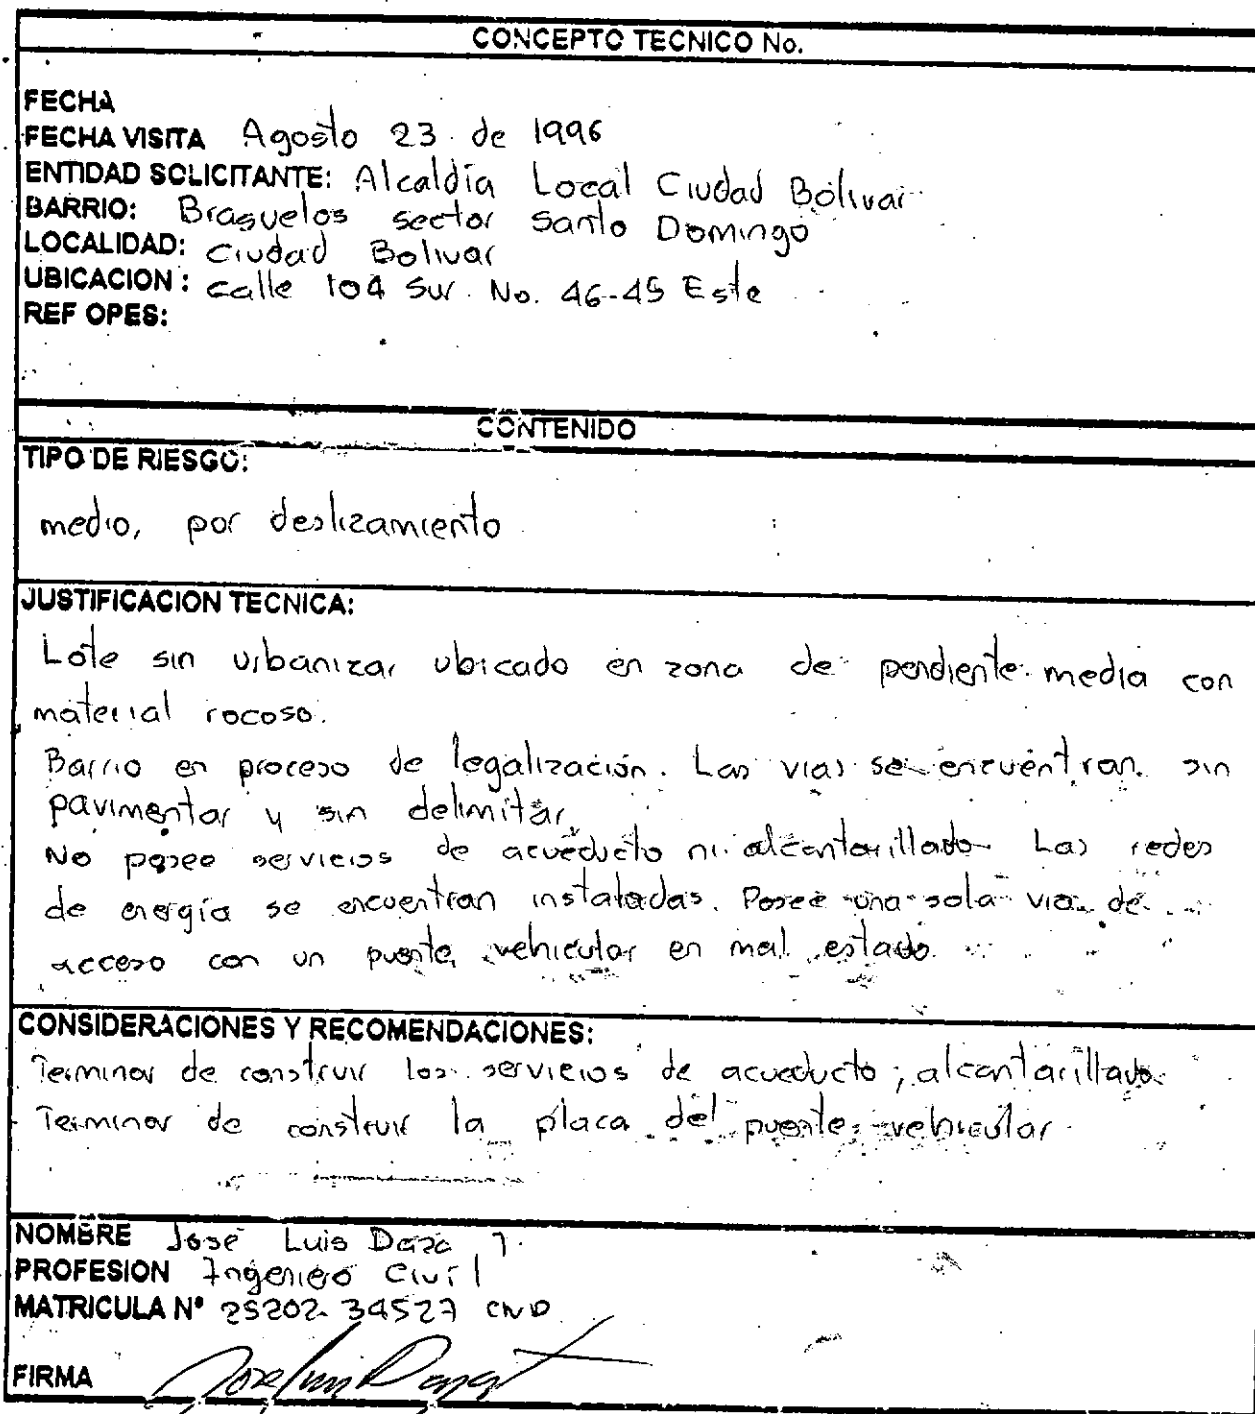 CONCEPTO TECNICO No.
FECHA
FECHA VISITA Agosto 23 de 1996
ENTIDAD SOLICITANTE: Alcaldía Local Ciudad Bolivar
BARRIO: Brasuelos sector Santo Domingo
LOCALIDAD: Ciudad Bolivar
UBICACION: calle 104 Sur No. 46-45 Este
REF OPES:
CONTENIDO
TIPO DE RIESGO:
medio, por deslizamiento
JUSTIFICACION TECNICA:
Lote sin urbanizar ubicado en zona de pendiente media con
material rocoso.
Barrio en proceso de legalización. Las vias se encuentran sin
pavimentar y sin delimitar
No posee servicios de acueducto ni alcantarillado. Las redes
de energía se encuentran instaladas. Posee una sola via de
acceso con un puente vehicular en mal estado
CONSIDERACIONES Y RECOMENDACIONES:
Terminar de construir los servicios de acueducto, alcantarillado
Terminar de construir la placa del puente vehicular
NOMBRE José Luis Daza
PROFESION Ingeniero Civil
MATRICULA Nº 25202-34527 CND
FIRMA Jose Luis Daza